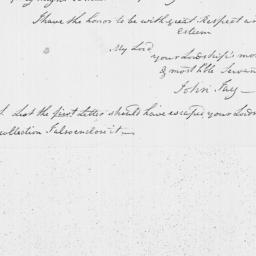 I have the honor to be with great Respect an
esteem
My Lord
your Lordship's mo
& most hble Servan
John Jay—
S. Lest the first Letter should have escaped your Lords
collection I also enclose it—